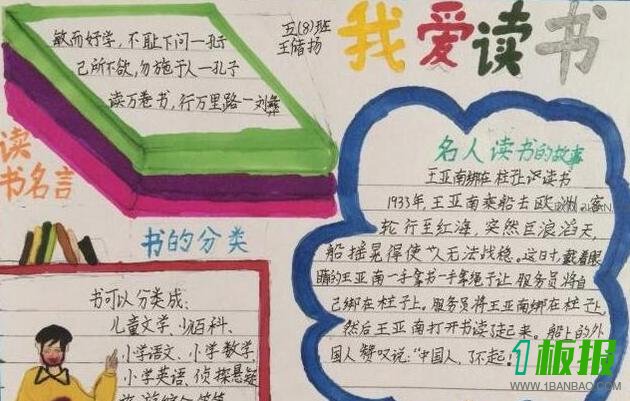 敏而好学，不耻下问一孔子
己所不欲，勿施于人一孔子
读万卷书，行万里路一刘彝
五(8)班
王储扬
我爱读书
读
书名言
书的分类
书可以分类成：
儿童文学、少百科、
小学语文、小学数学、
小学英语、侦探悬疑
名人读书的故事
王亚南绑在柱子上读书
1933年，王亚南乘船去欧
轮行至红海，突然巨浪滔天，
船摇晃得使人无法战稳。这时，戴着眼
睛的王亚南一手拿书一手拿绳子让服务员将自
己绑在柱子上。服务员将王亚南绑在柱子上，
然后王亚南打开书读起来。船上的外
国人赞叹说："中国人，了不起
1板报
WWW.1BANBAO.COM